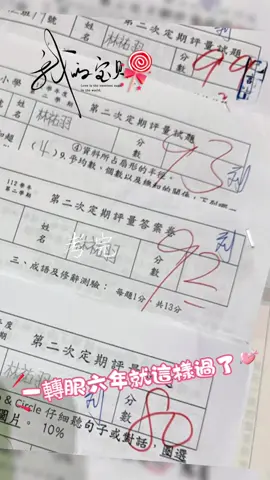 班19號
姓名
林祐羽
第二次定期評量試題
分數
99
我的寶貝
小學
第二次定期評量試題
姓名
林祐羽
分數
93
④資料所占扇形的半徑。
(4)9.平均數、個數以及總和的關係，下列哪
112學年
第二學期
第二次定期評量答案卷
姓名
林
分數
92
三、成語及修辭測驗： 每題1分，共13分
第二次定期評量
林祐羽
分數
80
一轉眼六年就這樣過了
& Circle 仔細聽句子或對話，圈選
圖片。 10%